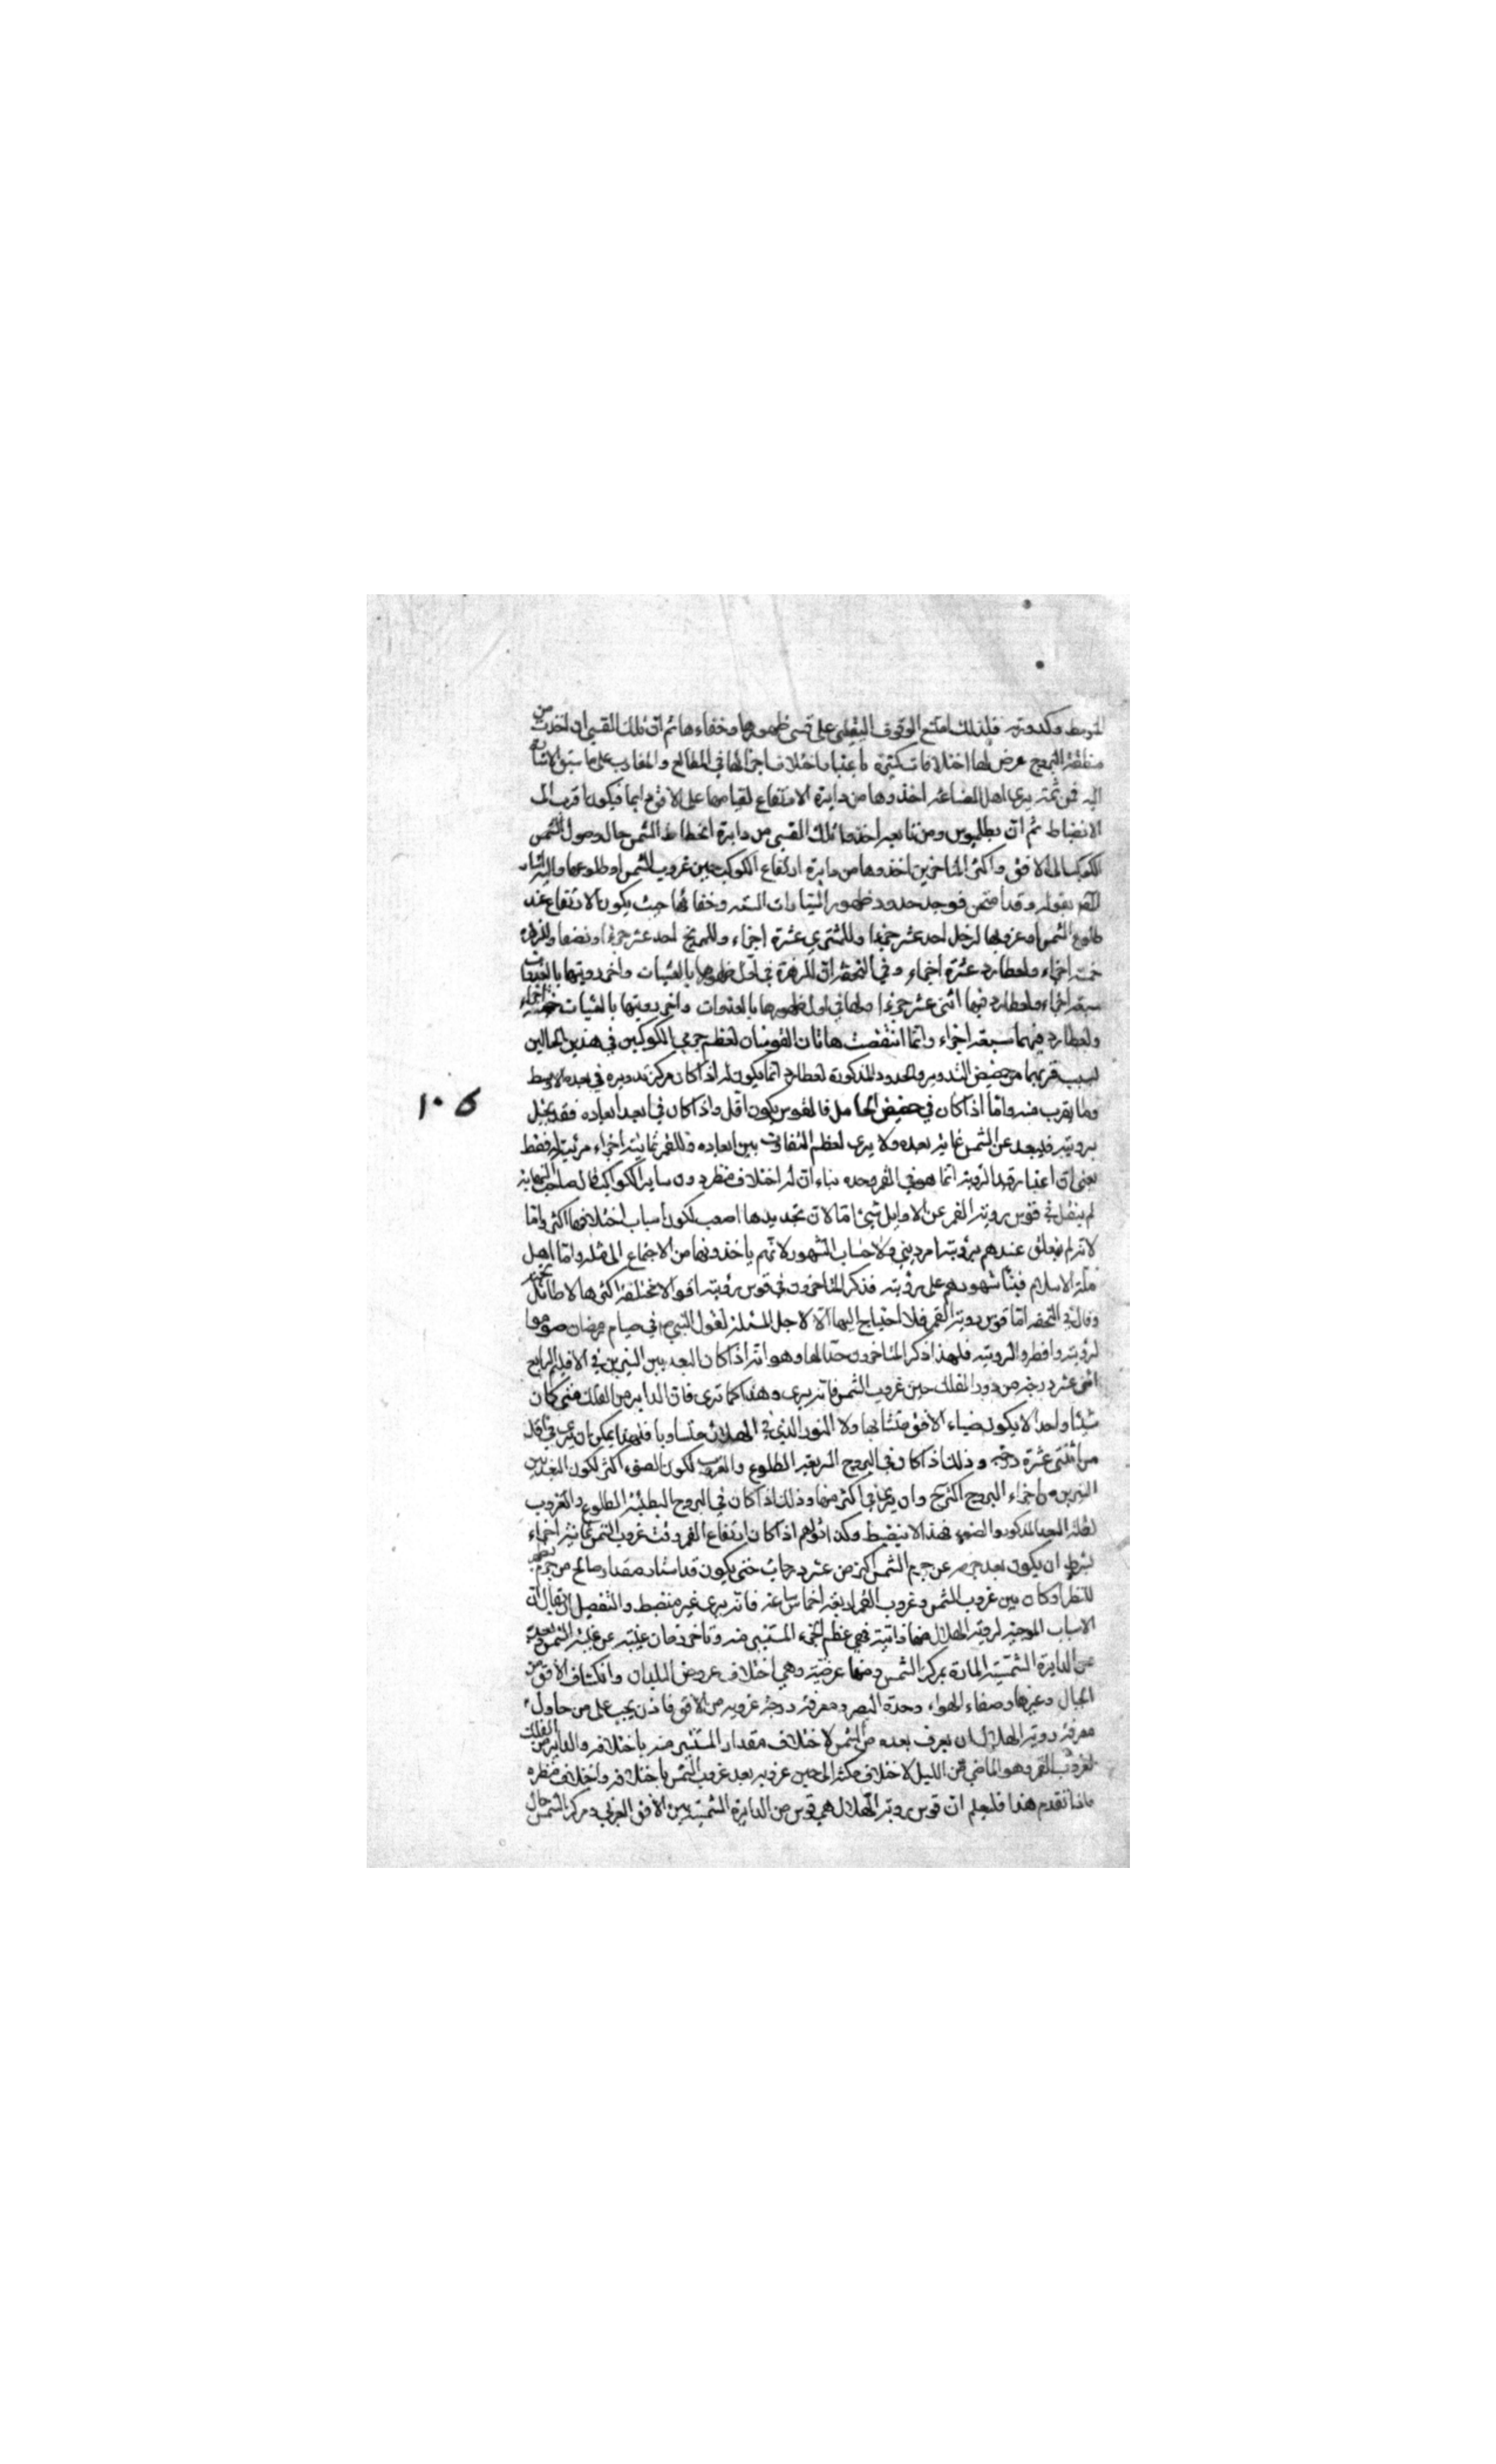 المتوسط وكدورته فلذلك امتنع الوقوف اليقيني على قسي ظهورها وخفاءها ثم ان تلك القسي ان اخذت من
منطقة البروج عرض لها اختلافات كثيرة باعتبار اختلاف اجزائها في المطالع والمغارب على ما سبق الاشارة
اليه فمن ثمة يرى اهل الصناعة اخذوها من دايرة الارتفاع لقيامها على الافق دايما فيكون اقرب الى
الانضباط ثم ان بطلميوس ومن تابعه اخذوا تلك القسي من دايرة انحطاط الشمس حال وصول الشمس
الكوكب الى الافق واكثر المتاخرين اخذوها من دايرة ارتفاع الكوكب حين غروب الشمس او طلوعها واليه اشار
المص بقوله وقد امتحن فوجد حدود ظهور السيارات الستة وخفائها حيث يكون الارتفاع عند
طلوع الشمس او غروبها لزحل احد عشر جزءا وللمشتري عشرة اجزاء وللمريخ احد عشر جزءا ونصفا وللزهرة
خمسة اجزاء ولعطارد عشرة اجزاء وفي التحفة ان للزهرة في اول ظهورها بالعشيات واخر رويتها بالغدوات
سبعة اجزاء ولعطارد فيها اثنى عشر جزءا ولها في اول ظهورها بالغدوات واخر رويتها بالعشيات خمسة اجزاء
ولعطارد فيهما سبعة اجزاء وانما انتقصت هاتان القوسان لعظم جرمي الكوكبين في هذين الحالين
لسبب قربهما من حضيض التدوير والحدود المذكورة لعطارد انما يكون له اذا كان مركز تدويره في بعده الاوسط
وما يقرب منه واما اذا كان في حضيض الحامل فالقوس يكون اقل واذا كان في ابعد ابعاده فقد
برويته فيبعد عن الشمس غاية بعده ولا يرى لعظم التفاوت بين ابعاده وللقمر ثمانية اجزاء مرئية له فقط
يعني ان اعتبار قيد الروية انما هو في القمر وحده بناء ان له اختلاف منظر دون ساير الكواكب قال صاحب النهاية
لم ينقل في قوس روية القمر عن الاوايل شئ اما لان تحديدها اصعب لكون اسباب اختلافها اكثر واما
لانه لم يتعلق عندهم برؤيته امر ديني ولا حساب الشهور لانهم ياخذونها من الاجتماع الى مثله واما اهل
ملة الاسلام فبنا شهورهم على رؤيته فذكر المتاخرون في قوس رؤيته اقوالا مختلفة اكثرها لا طائل تحته
وقال في التحفة اما قوس روية القمر فلا احتياج اليها الا لاجل المسلمين لقول النبي ص في صيام رمضان صوموا
لرؤيته وافطروا لرويته فلهذا ذكر المتاخرون حدا لها وهو انه اذا كان البعد بين النيرين في الاقليم الرابع
اثنى عشر درجة من دور الفلك حين غروب الشمس فانه يرى وهذا كما ترى فان الداير من الفلك متى كان
شيئا واحدا لا يكون ضياء الافق متشابها ولا النور الذي في الهلال متساويا فلهذا يمكن ان يرى في اقل
من اثنتي عشرة درجة وذلك اذا كان في البروج السريعة الطلوع والغروب لكون الضوء اكثر لكون البعد بين
النيرين من اجزاء البروج اكثر ح وان يرى في اكثر منها وذلك اذا كان في البروج البطيئة الطلوع والغروب
لقلة البعد المذكور والضوء فهذا لا ينضبط وكذا قولهم اذا كان ارتفاع القمر وقت غروب الشمس ثمانية اجزاء
بشرط ان يكون بعد جرمه عن جرم الشمس اكثر من عشر درجات حتى يكون قد استنار مقدار صالح من جرمه يظهر
للنظر او كان بين غروب الشمس وغروب القمر اربعة اخماس ساعة فانه يرى غير منضبط والتفصيل ان يقال ان
الاسباب الموجبة لروية الهلال منها ذاتية وهي عظم الجزء المستنير منه وتاخر زمان غيبته عن غيبة الشمس وبعده
عن الدايرة الشمسية المارة بمركز الشمس ومنها عرضية وهي اختلاف عروض البلدان وانكشاف الافق من
الجبال وغيرها وصفاء الهواء وحدة البصر ومعرفة درجة غروبه من الافق فاذن يجب على من حاول
معرفة روية الهلال ان يعرف بعده من الشمس لاختلاف مقدار المستنير منه باختلافه والداير من الفلك
لغروب القمر وهو الماضي من الليل لاختلاف مكثه الى حين غروبه بعد غروب الشمس باختلافه واختلاف منظره
فاذا تقدم هذا فليعلم ان قوس روية الهلال هي قوس من الدايرة الشمسية بين الافق الغربي ومركز الشمس حال
١٠٥